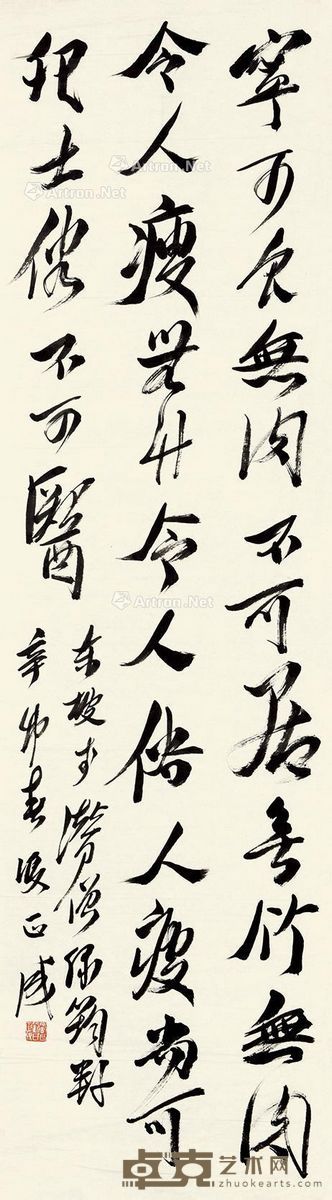 寧可食無肉不可居無竹無肉
令人瘦無竹令人俗人瘦尚可
肥士俗不可醫
东坡於潛僧緑筠軒
辛卯春正成
Artron.Net
Artron.Net
Artron.Net
Artron.Net
卓克艺术网
zhuokearts.com